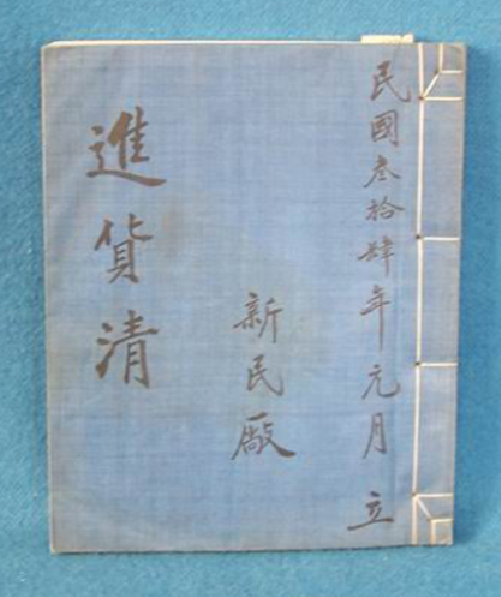 民國叁拾肆年元月立
新民廠
進貨清